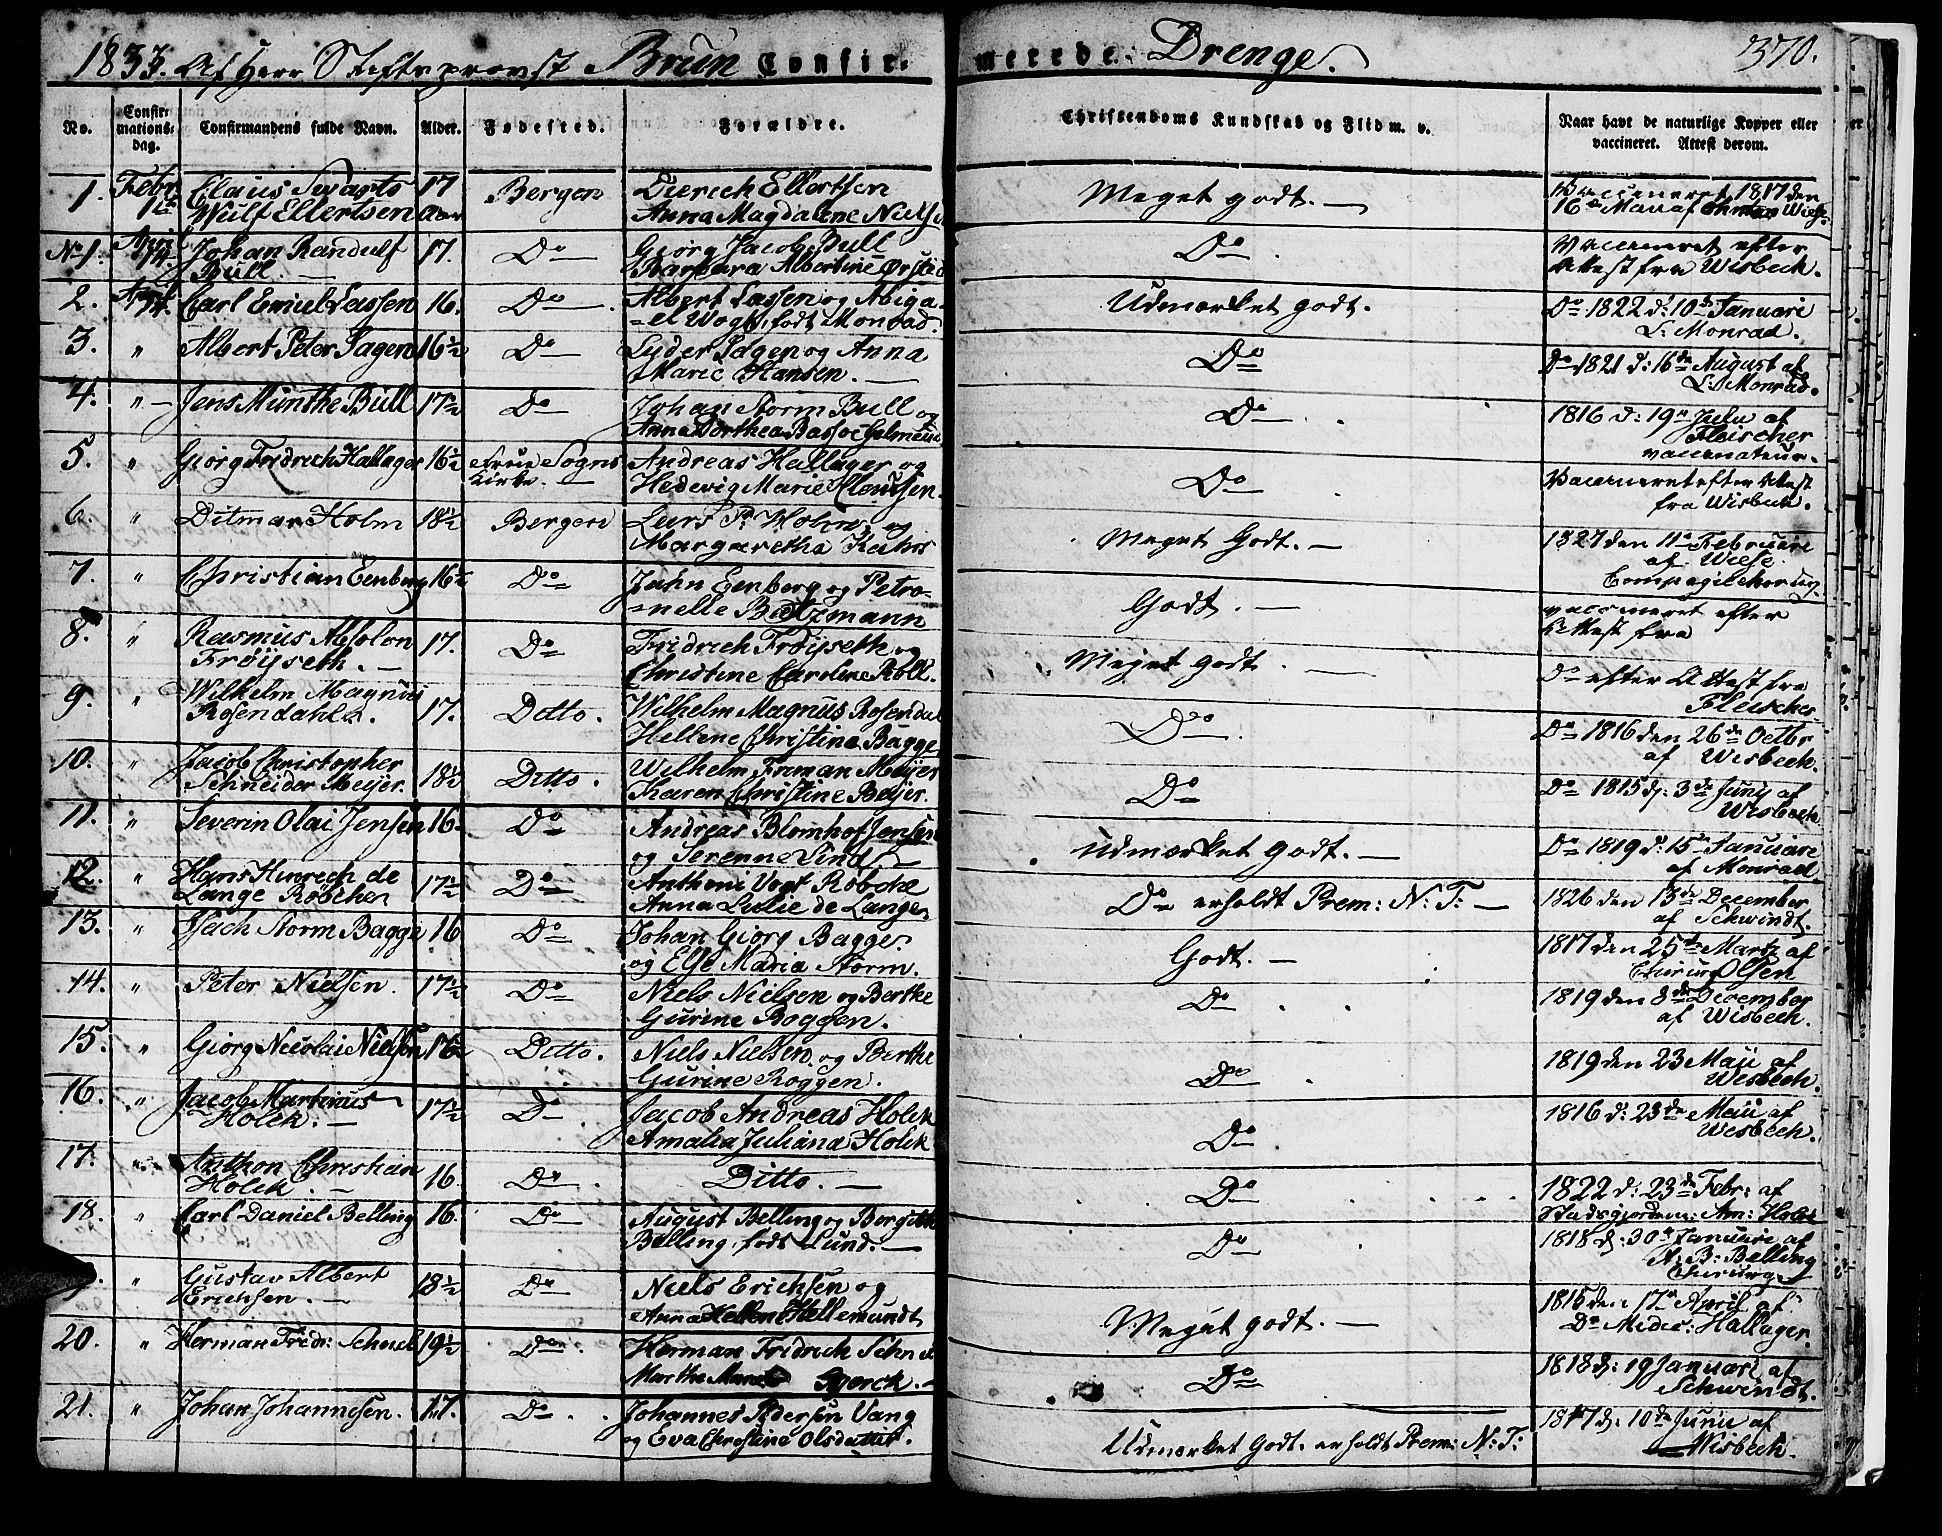 1833. Af Herr Stiftsprovst Brun Confir-
merede Drenge.
370.
No. Confirmations-dag. Confirmandens fulde Navn. Alder. Fødested. Forældre. Christendoms Kundskab og Flid m. v. Naar havt de naturlige Kopper eller vaccineret. Attest derom.
1. Febr. Claus Swarts 17 Bergen Dierich Ellertsen Meget godt. Vaccineret 1817 den
Wulf Ellertsen Aar Anna Magdalene Niels 16de Mai af Wiese.
No 1. Apri 14. Johan Randulf 17. Do Giørg Jacob Bull Do Vaccineret efter
Bull. Barbara Albertine Ørsted Attest fra Wisbech.
2. Carl Emiul Lassen 16. Do Albert Lassen og Abiga- Udmærket godt. Do 1822 d: 10de Januari
-el Vogt, født Monrad. L. Monrad.
3. " Albert Peter Sagen 16½ Do Lyder Sagen og Anna Do Do 1821 d: 16de August af
Marie Hansen. L. Monrad.
4. " Jens Munthe Bull 17½ Do Johan Storm Bull og Do 1816 d: 19de Julu af
Anna Dorthea Bassøe Fleischer
vaccinateur.
5. " Giørg Fredrich Hallager 16½ Frue Sogns Andreas Hallager og Do Vaccineret efter Attest
Kirke. Hedevig Marie Clausen. fra Wisbech.
6. " Ditmar Holm 18½ Bergen Lars P. Holm og Meget Godt. 1827 den 11te Februari
Margaretha Kahrs af Wiese.
Compagiechirurg
7. " Christian Eenberg 16½ Do Jahn Eenberg og Petro- Godt. vaccineret efter
-nelle Baltzmann Attest fra
8. " Rasmus Absolon 17. Do Fridrich Frøyseth og Meget godt. Do efter Attest fra
Frøyseth. Christine Caroline Roll. Fleischer.
9. " Wilhelm Magnus 17. Ditto. Wilhelm Magnus Rosendal Do Do 1816 den 26de Octbr
Rosendahl. Hellene Christine Bagge af Wisbech.
10. " Jacob Christopher 18½ Ditto. Wilhelm Friman Meijer Do Do 1815 d: 3de Junij af
Schneider Meijer. Karen Christine Beijer. Wisbech.
11. " Severin Olai Jensen 16. Do Andreas Blomhof Jensen Udmærket godt. Do 1819 d: 15de Januari
og Serenne Lind af Monrad.
12. " Hans Hinrich de 17½ Do Anthoni Vogt Robske Do erholdt Prem: N: T: 1826 den 13de December
Lange Røbcher Anna Lulie de Lange. af Schwindt.
13. " Isach Storm Bagge 16 Do Johan Giørg Bagge. Godt. 1817 den 25de Martz af
og Else Maria Storm. Chirurg Olsen
14. " Peter Nielsen. 17½ Do Niels Nielsen og Berthe Do 1819 den 8de December
Gurine Roggen. af Wisbech.
15. " Giørg Nicolai Nielsen 16½ Ditto. Niels Nielsen og Berthe Do 1819 den 23 Maii af
Gurine Roggen. Wisbech.
16. " Jacob Martinus 17½ Do Jacob Andreas Holck Do 1816 d: 23de Maii af
Holck. Amalia Juliana Holck Wisbech.
17. " Anthon Christian 16. Do Ditto. Do 1822 d: 23de Febr: af
Holck. Stadsgjordem: Am: Holck
18. " Carl Daniel Belling 16. Do August Belling og Bergitte Do 1818 d: 30te Januari af
Belling, føds Lund. A. B. Belling
Chirurg
" Gustav Albert 18½ Do Niels Erichsen og Meget godt. 1815 den 17de April af
Erichsen. Anna Hellene Hellemundt Do Medic: Hallager.
20. " Herman Fridr: Schnel 19½ Do Herman Fridrich Do 1818 d: 19 Januari af
Marthe Marie Schwindt.
21. " Johan Johannesen. 17. Do Johannes Pedersen Vang Udmærket Godt. erholdt Prem: N: T: 1817 d: 10de Junii af
og Eva Christine Olsdatter. Wisbech.